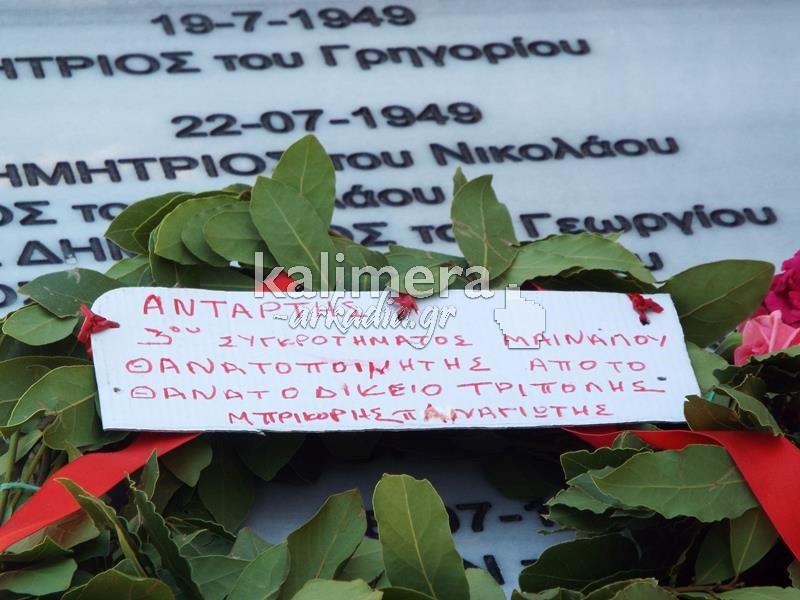 19-7-1949
ΗΤΡΙΟΣ του Γρηγορίου
22-07-1949
ΗΜΗΤΡΙΟΣ του Νικολάου
ΟΣ το λάου
ΔΗΜ ΟΣ του Γεωργίου
kalimera
-arkadia.gr
ΑΝΤΑΡΤΗΣ
3ου ΣΥΓΚΡΟΤΗΜΑΤΟΣ ΜΑΙΝΑΛΟΥ
ΘΑΝΑΤΟΠΟΙΝΗΤΗΣ ΑΠΟ ΤΟ
ΘΑΝΑΤΟΔΙΚΕΙΟ ΤΡΙΠΟΛΗΣ
ΜΠΡΙΚΟΡΗΣ ΠΑΝΑΓΙΩΤΗΣ